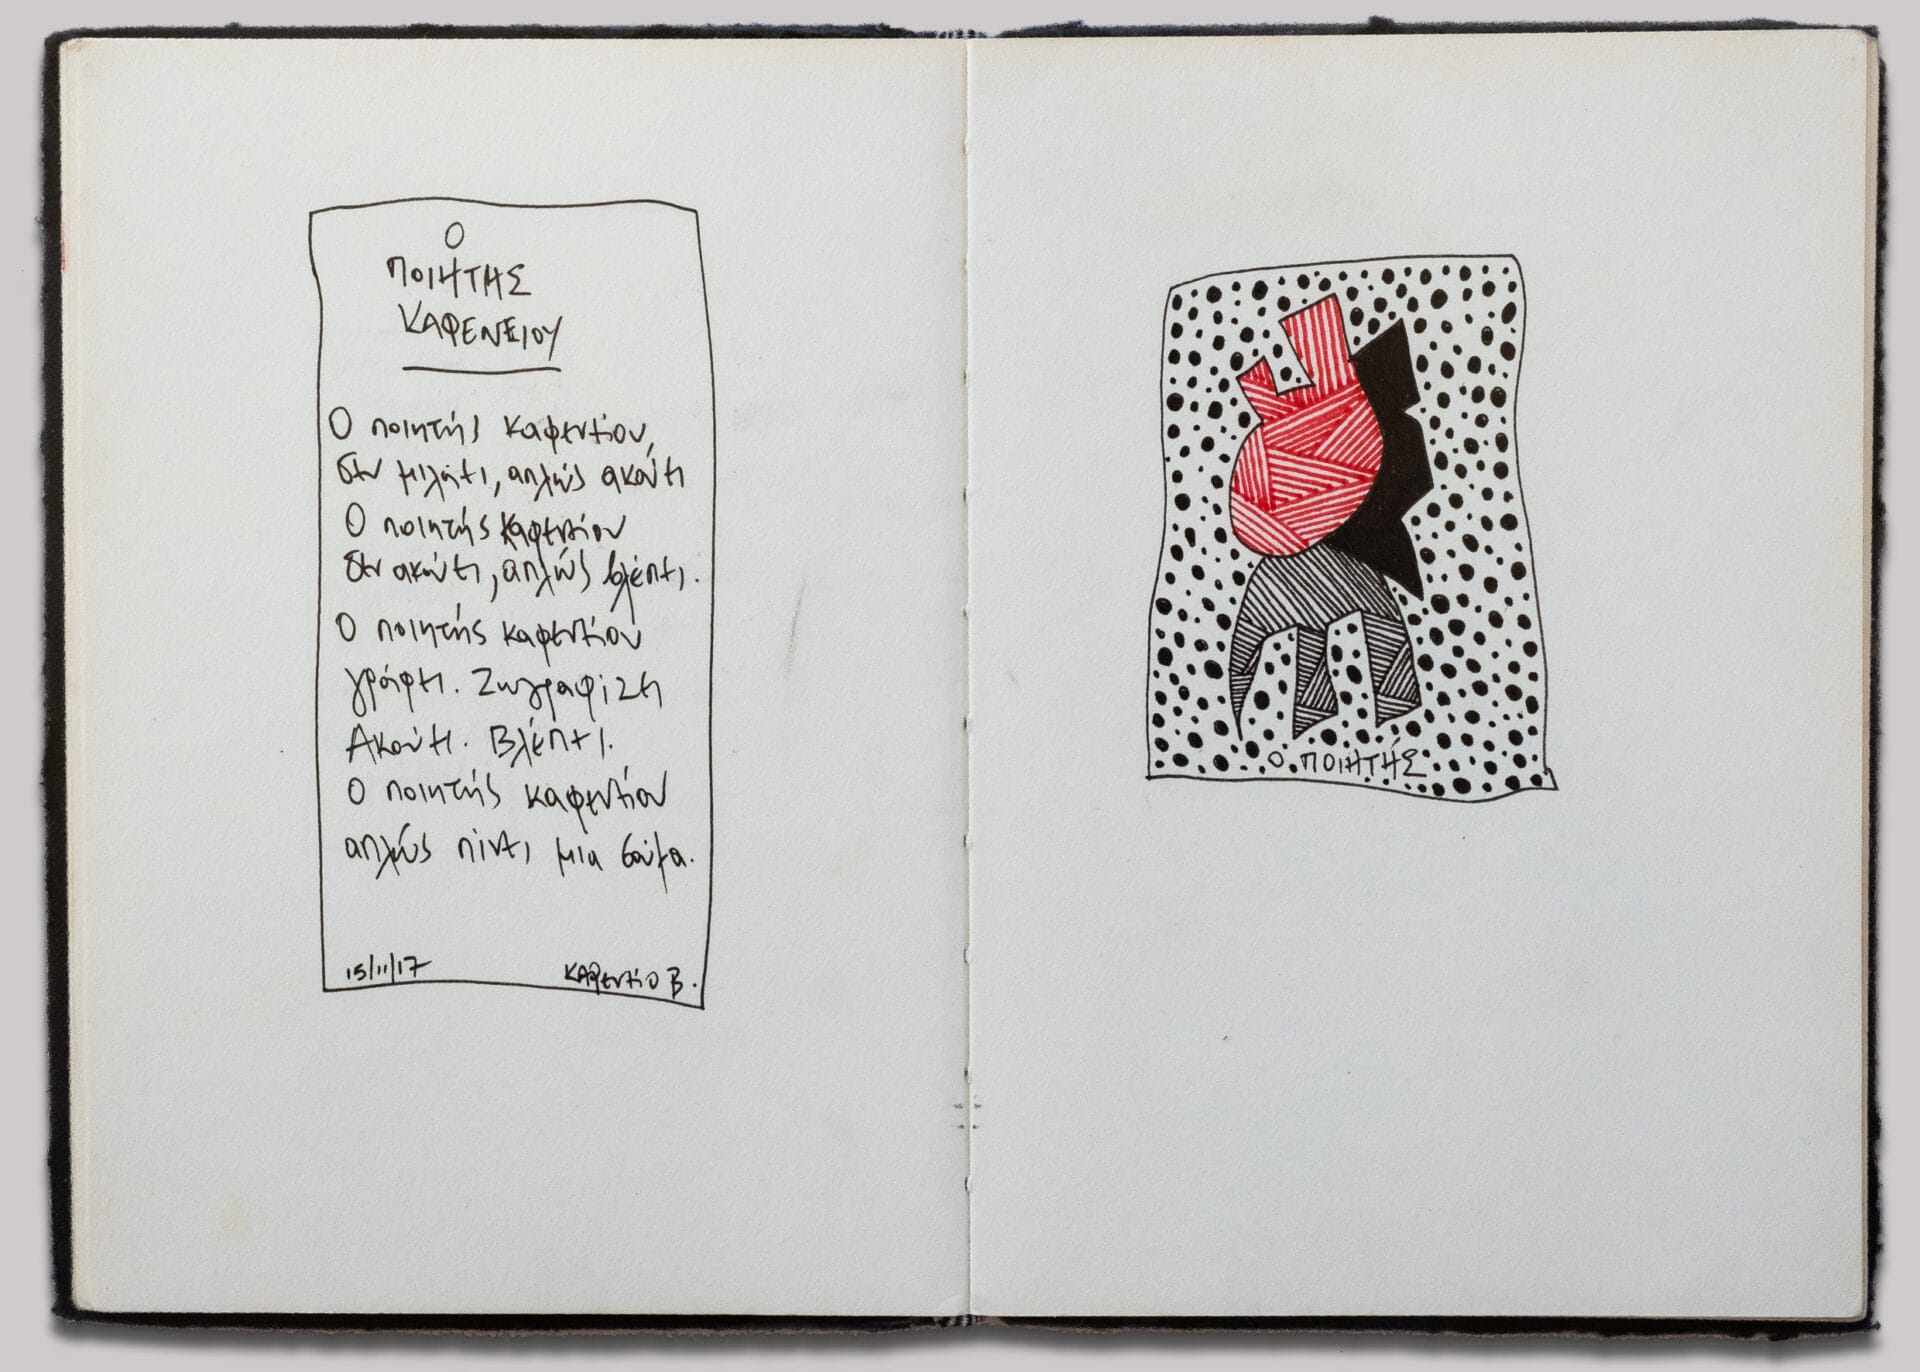 Ο
ΠΟΙΗΤΗΣ
ΚΑΦΕΝΕΙΟΥ
Ο ποιητής καφενείου,
δεν μιλάει, απλώς ακούει
Ο ποιητής καφενείου
δεν ακούει, απλώς βλέπει.
Ο ποιητής καφενείου
γράφει. Ζωγραφίζει
Ακούει. Βλέπει.
Ο ποιητής καφενείου
απλώς πίνει μια σούμα.
15/11/17 ΚΑφενείο Β.
Ο ΠΟΙΗΤΉΣ